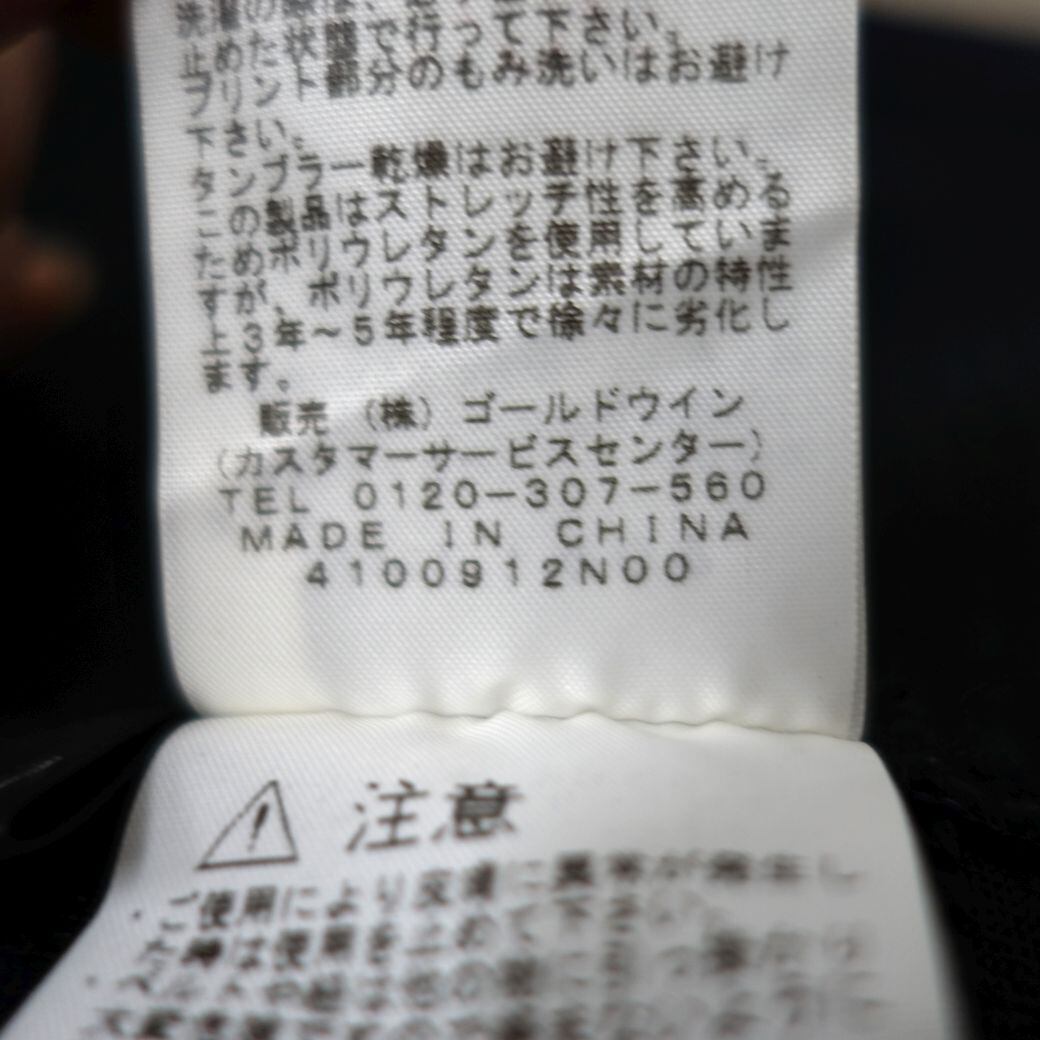 止めた状態で行って下さい。
プリント部分のもみ洗いはお避け
下さい。
タンブラー乾燥はお避け下さい。
この製品はストレッチ性を高める
ためポリウレタンを使用していま
すが、ポリウレタンは素材の特性
上3年～5年程度で徐々に劣化し
ます。
販売 (株) ゴールドウイン
(カスタマーサービスセンター)
TEL 0120-307-560
MADE IN CHINA
4100912N00
注意
・ご使用により皮膚に異常が発生し
た時は使用を止めて下さい。